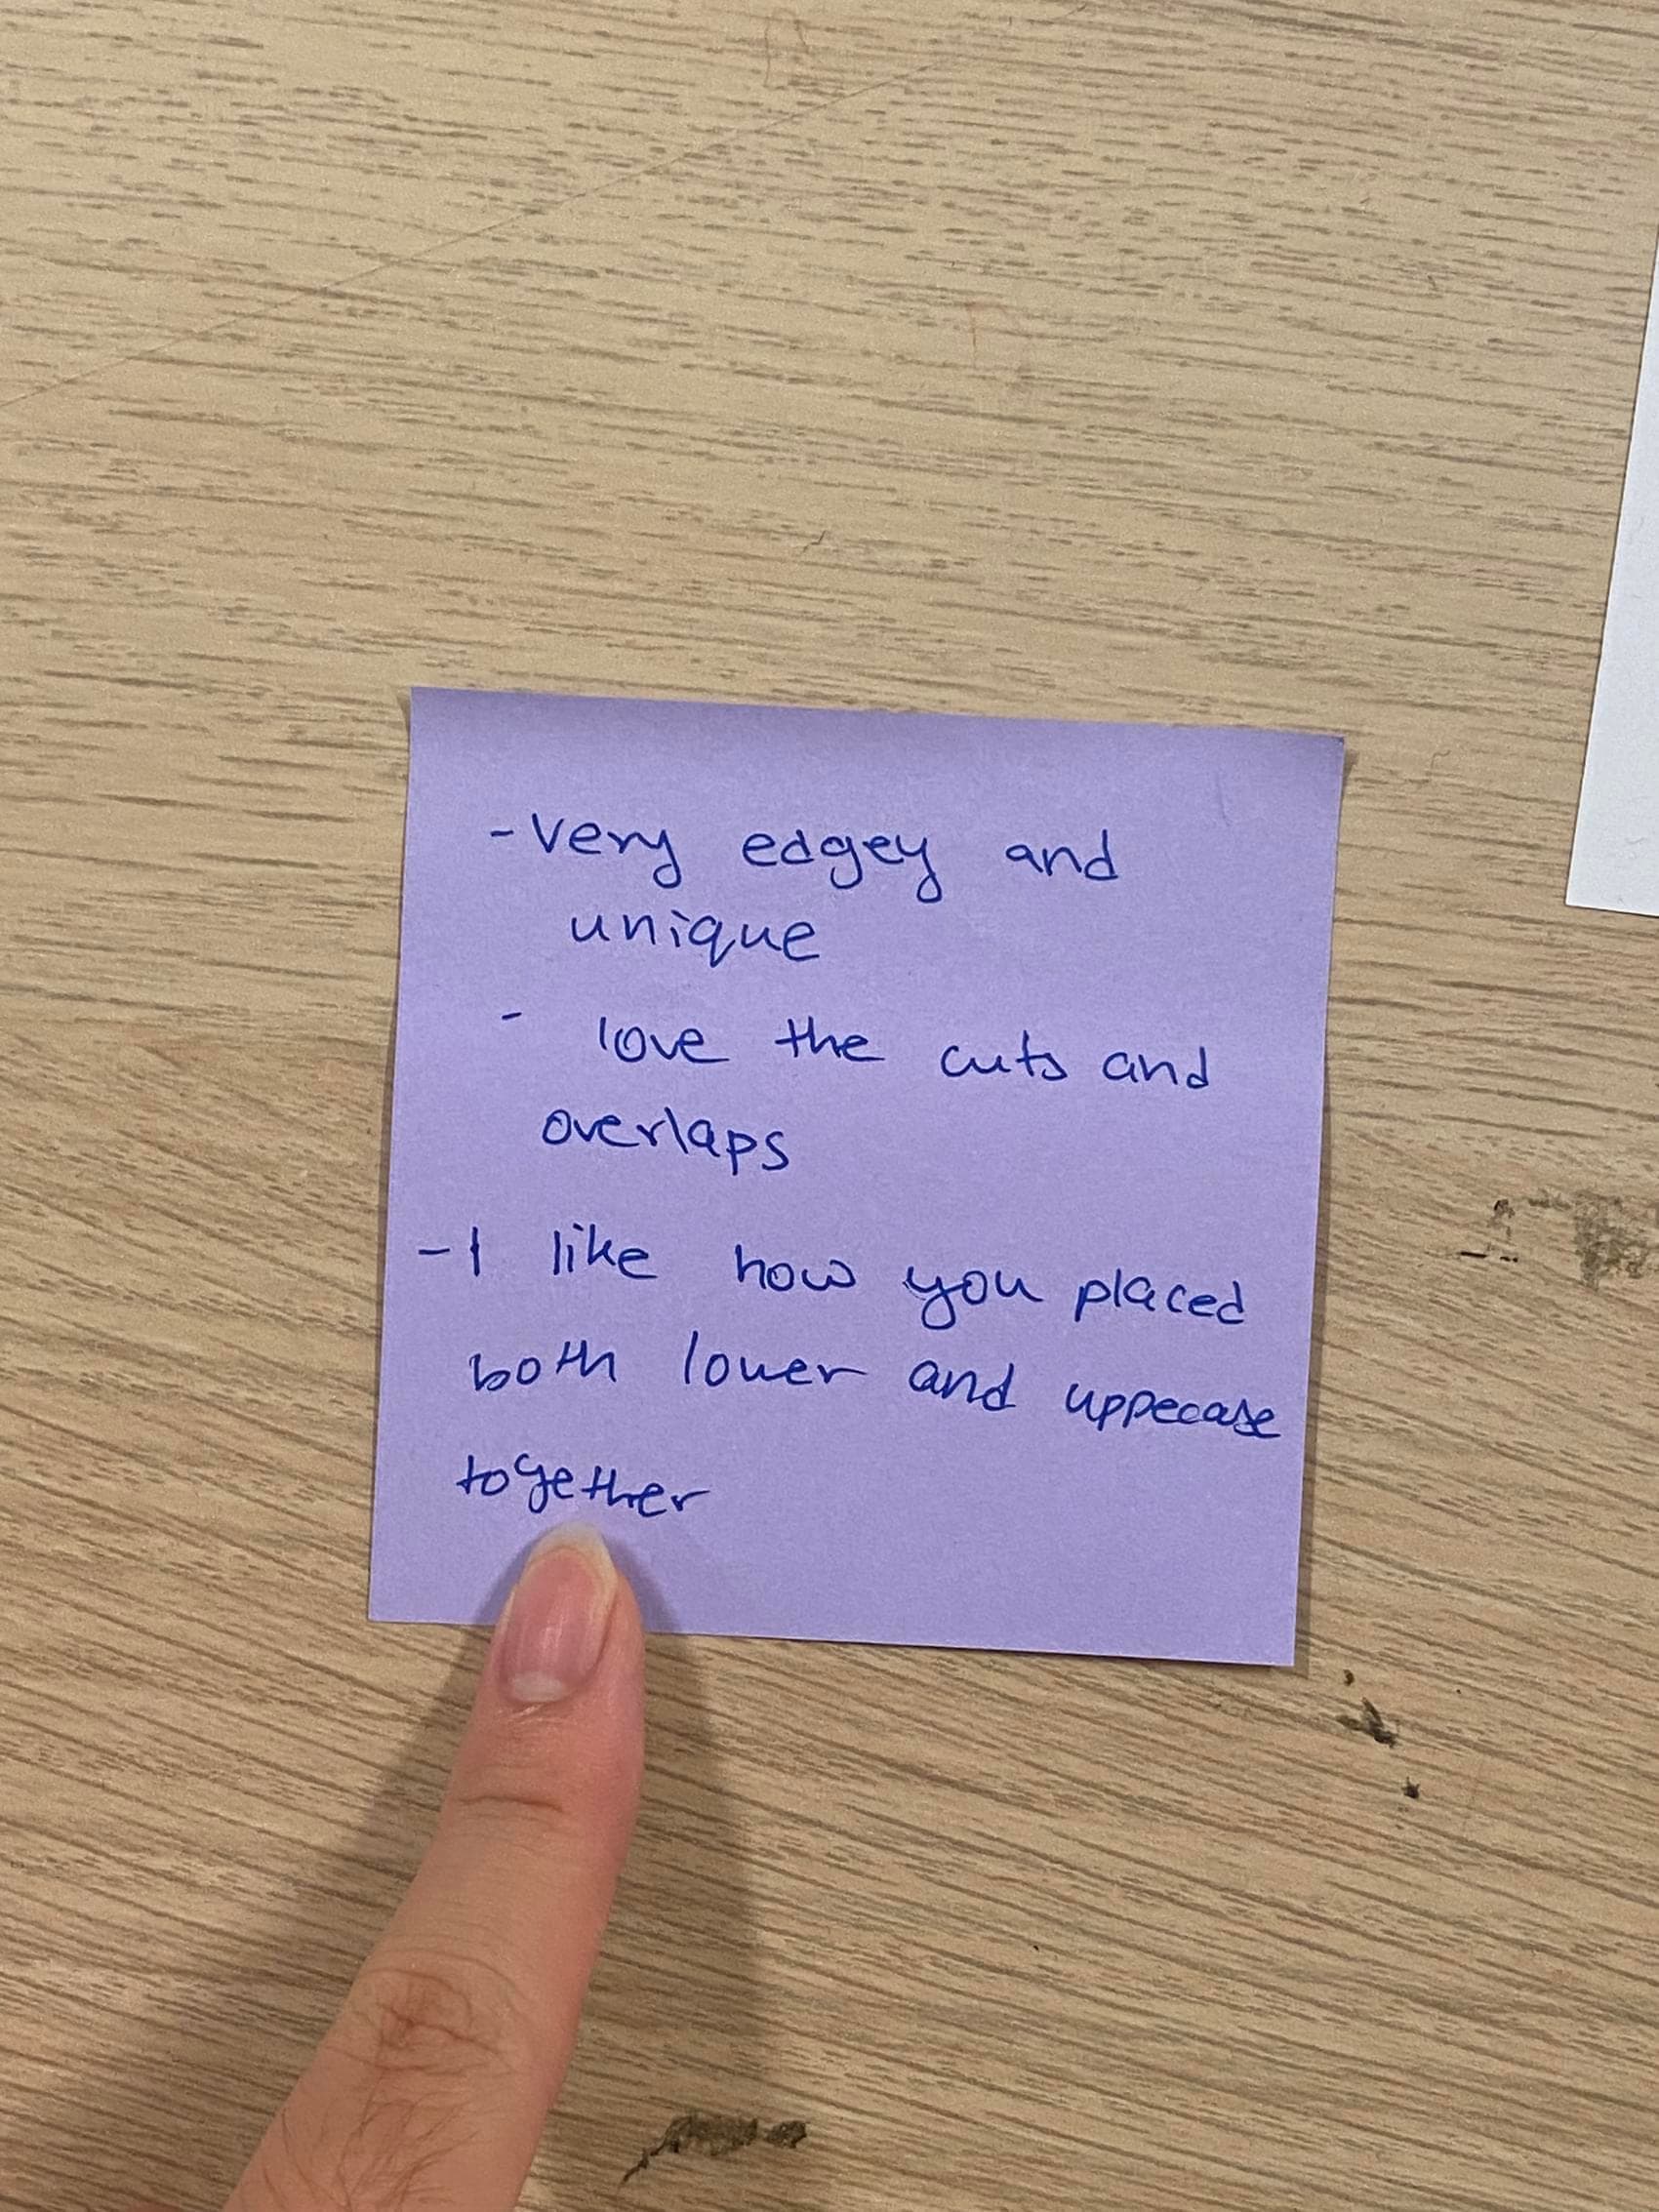 - very edgey and
unique
- love the cuts and
overlaps
- I like how you placed
both lower and uppecase
together